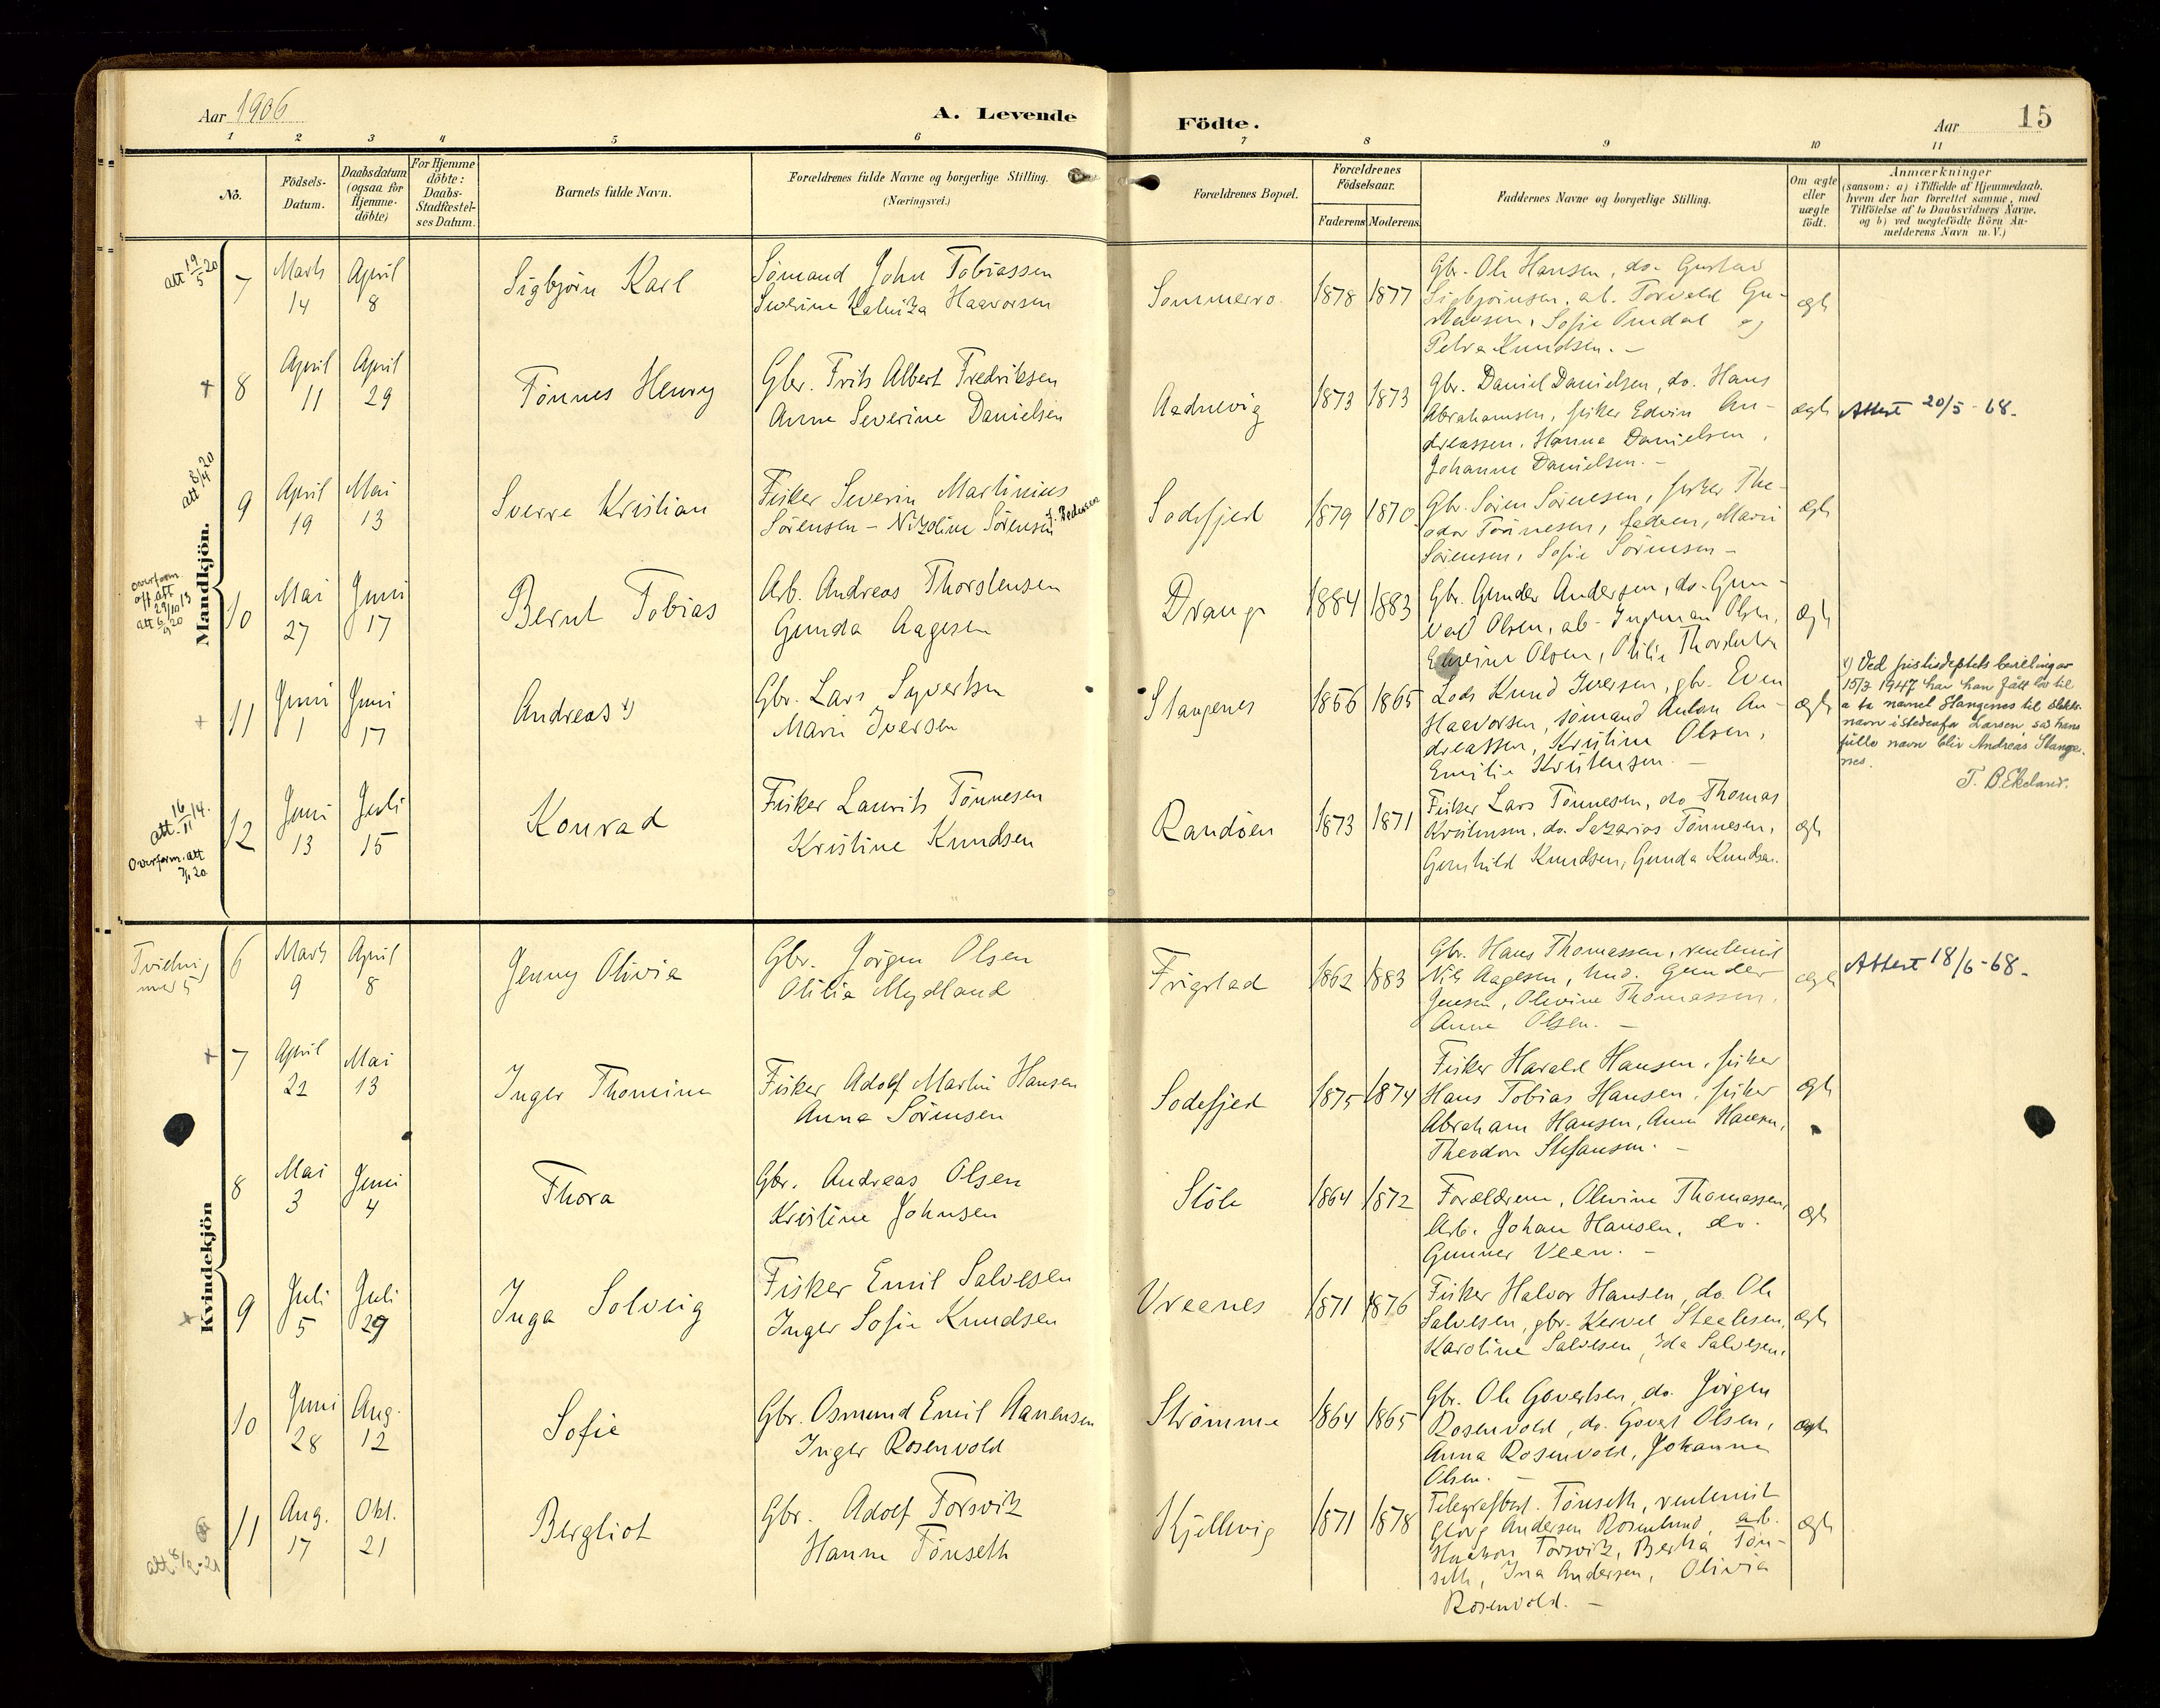 Aar 1906
A. Levende Födte.
Aar
15
1 2 3 4 5 6 7 8 9 10 11
No.
Födsels-
Datum.
Daabsdatum
(ogsaa for
Hjemme-
döbte)
For Hjemme
döbte:
Daabs-
Stadfæstel-
ses Datum.
Barnets fulde Navn.
Forældrenes fulde Navne og borgerlige Stilling.
(Næringsvei.)
Forældrenes Bopæl.
Forældrenes
Födselsaar.
Faderens Moderens
Faddernes Navne og borgerlige Stilling.
Om ægte
eller
uægte
födt.
Anmærkninger
(saasom: a) i Tilfælde af Hjemmedaab,
hvem der har forrettet samme, med
Tilföielse af to Daabsvidners Navne,
og b) ved uægtefödte Börn An-
melderens Navn m.V.)
Mandkjön.
att 19/5 20
7
Marts
14
April
8
Sigbjörn Karl
Sömand John Tobiassen
Severine Haavorsen
Sommerro
1878 1877
Gbr. Ole Hansen, do. Gustav
Sigbjörnsen, ab. Torvald Gu-
stavsen, Sofie Omdal og
Petra Knudsen. -
ægte
+
8
April
11
April
29
Tönnes Henry
Gbr. Frits Albert Fredriksen
Anne Severine Danielsen
Aadnevig
1873 1873
Gbr. Daniel Danielsen, do. Hans
Abrahamsen, fisker Edvin An-
dreassen, Hanna Danielsen,
Johanne Danielsen. -
ægte
Attest 20/5 - 68.
att 8/4 20
9
April
19
Mai
13
Sverre Kristian
Fisker Severin Martinius
Sörensen - Nizoline Sörensen
f. Pedersen
Sodefjed
1879 1870
Gbr. Sören Sörensen, fisker The-
odor Tönnesen, faderen, Marie
Sörensen, Sofie Sörensen -
ægte
overform.
off. att
29/10 13
att 6/9 20
10
Mai
27
Juni
17
Bernt Tobias
Arb. Andreas Thorstensen
Gunda Aagesen
Drange
1884 1883
Gbr. Gunder Andersen, do. Gun-
vald Olsen, ab. Ingman Olsen,
Olsen, Otilie Thorstensen
ægte
+
11
Juni
1
Juni
17
Andreas 1)
Gbr. Lars Syvertsen
Marie Iversen
Stangenes
1856 1865
Lods Knud Iversen, gbr. Even
Haavorsen, sömand Anton An-
dreassen, Kristine Olsen,
Emilie Kristensen. -
ægte
1) Ved justisdeptets bevilling av
15/3 1947 har han fått lov til
å ta navnet Stangenes til slekts-
navn istedenfor Larsen, så hans
fulle navn blir Andreas Stange-
nes.
T. B. Ekeland.
att. 16/11 14.
Overform. att
7/1 20
12
Juni
13
Juli
15
Konrad
Fisker Laurits Tönnesen
Kristine Knudsen
Randöen
1873 1871
Fisker Lars Tönnesen, do. Thomas
Kristensen, do. Sakarias Tönnesen,
Gunhild Knudsen, Gunda Knudsen.
ægte
Kvindekjön
Tvilling
med 5
6
Marts
9
April
8
Jenny Olivia
Gbr. Jörgen Olsen
Otilia Mydland
Frigstad
1862 1883
Gbr. Hans Thomassen, rentenist
Nils Aagesen, Gunder
Jensen, Olevine Thomassen,
Anne Olsen. -
ægte
Attest 18/6 - 68.
+
7
April
22
Mai
13
Inger Thomine
Fisker Adolf Martin Hansen
Anna Sörensen
Sodefjed
1875 1874
Fisker Harald Hansen, fisker
Hans Tobias Hansen, fisker
Abraham Hansen, Anne Hansen,
Theodor Stefansen. -
ægte
8
Mai
3
Juni
4
Thora
Gbr. Andreas Olsen
Kristine Johnsen
Stöle
1864 1872
Forældrene, Olevine Thomassen,
Arb. Johan Hansen, do.
Gunner Veen. -
ægte
+
9
Juli
5
Juli
29
Inga Solveig
Fisker Emil Salvesen
Inger Sofie Knudsen
Vreenes
1871 1876
Fisker Halvor Hansen, do. Ole
Salvesen, gbr. Kervel Steelesen,
Karoline Salvesen, Ida Salvesen.
ægte
10
Juni
28
Aug.
12
Sofie
Gbr. Osmund Emil Aanensen
Inger Rosenvold
Strömme
1864 1865
Gbr. Ole Govertsen, do. Jörgen
Rosenvold, do. Govert Olsen,
Anna Rosenvold, Johanne
Olsen. -
ægte
att 8/2-21
11
Aug.
17
Okt.
21
Bergliot
Gbr. Adolf Torsvik
Hanne Tönseth
Kjellevig
1871 1878
Telegrafbest. Tönseth, rentenist
Georg Andersen Rosenlund, arb.
Haakon Torsvik, Bertha Tön-
seth, Ina Andersen, Olivia
Rosenvold. -
ægte